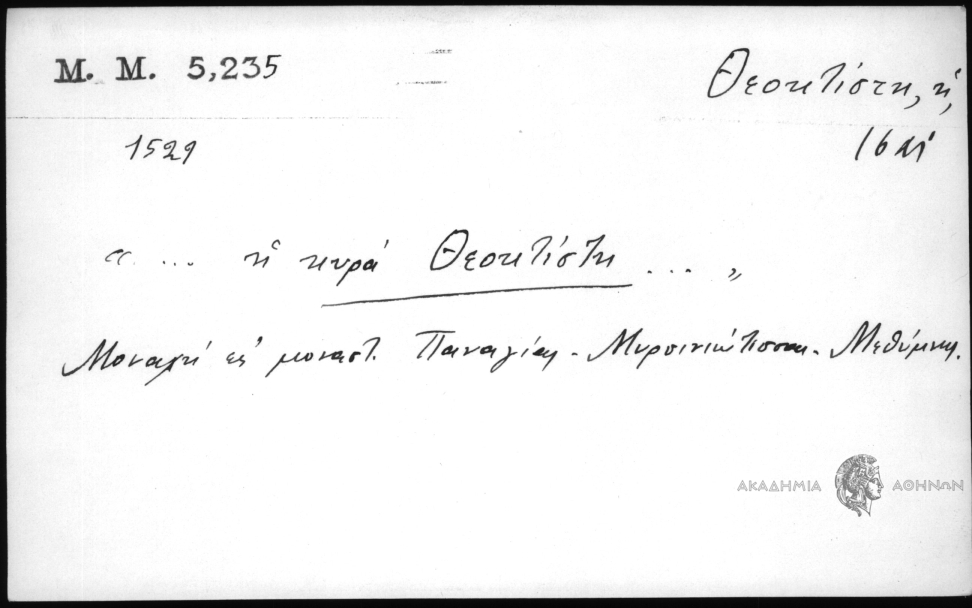 M. M. 5,235
Θεοκτίστη, ἡ,
1529
16 αἰ
«... ἡ κυρά Θεοκτίστη ... »
Μοναχή εἰς μοναστ. Παναγίας - Μυρσινιώτισσας - Μεθύμνης.
ΑΚΑΔΗΜΙΑ ΑΘΗΝΩΝ